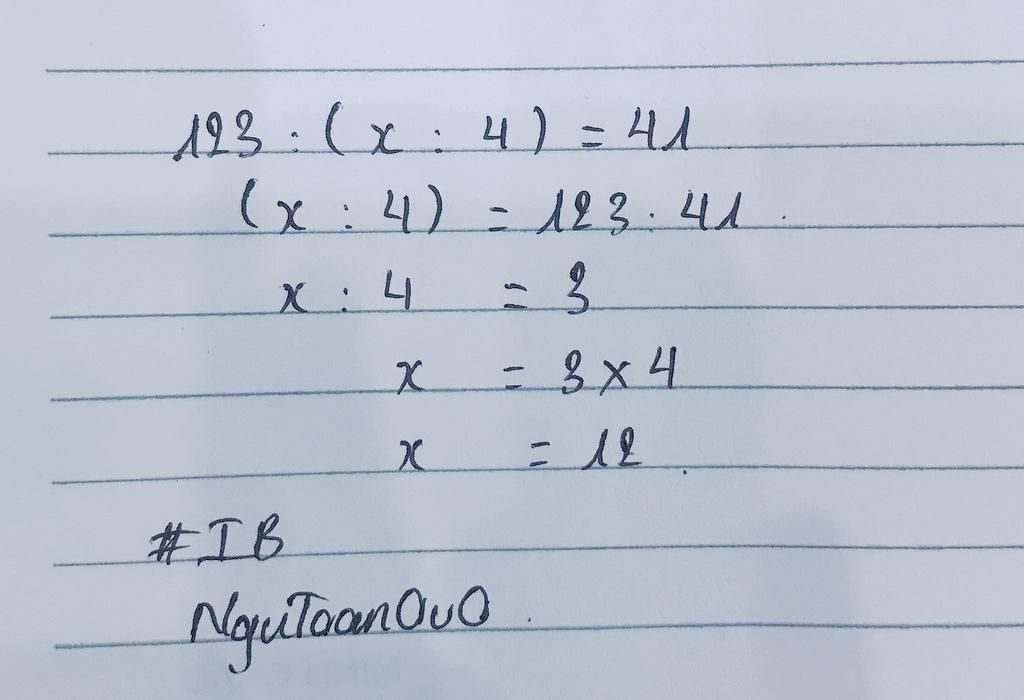 123 : ( x : 4 ) = 41
( x : 4 ) = 123 : 41
x : 4 = 3
x = 3 x 4
x = 12
#IB
NguToanOuO